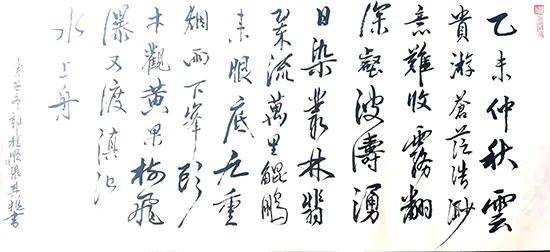 乙未仲秋雲
貴游蒼茫浩渺
意難收霧翻
深壑波濤湧
日染叢林翡
翠流萬里鯤鵬
來眼底九重
烟雨下峯頭
才觀黃果樹飛
瀑又渡滇池
水上舟
書